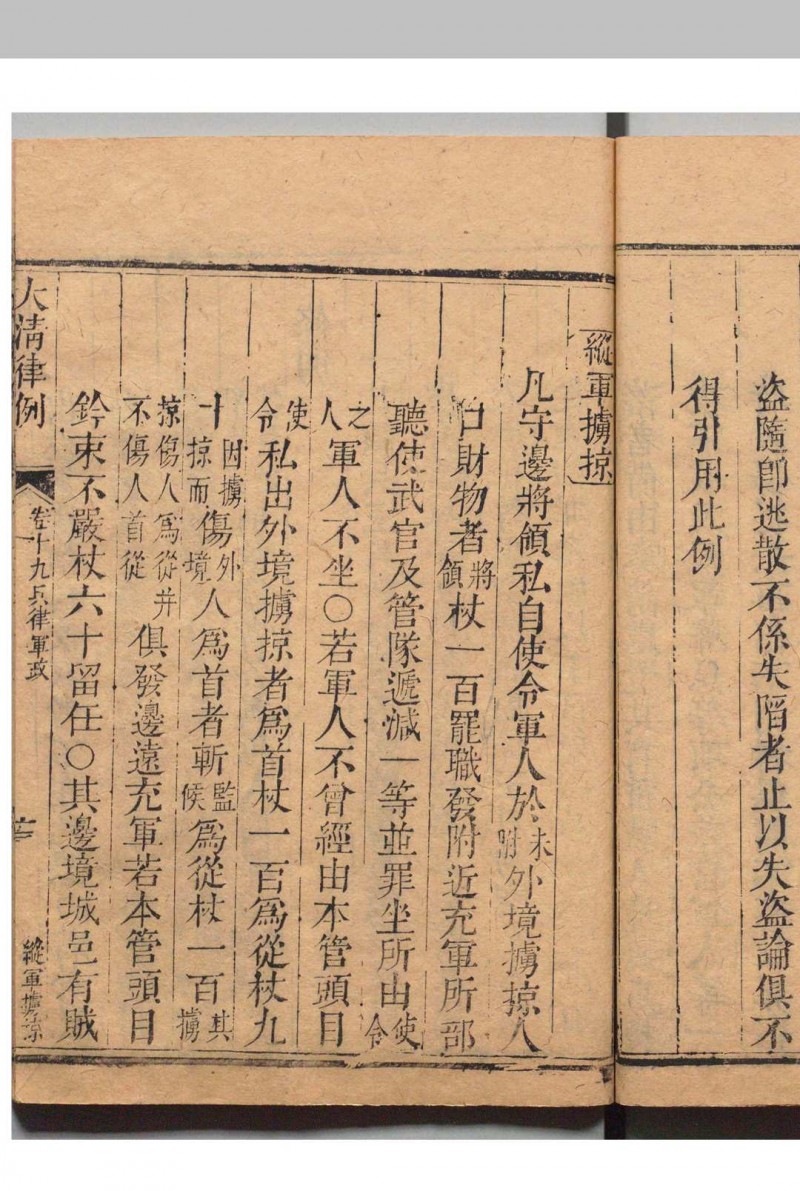 盜隨卽逃散不係失陷者止以失盜論俱不
得引用此例
縱軍擄掠
凡守邊將領私自使令軍人於未附外境擄掠人
口財物者將領杖一百罷職發附近充軍所部
聽使武官及管隊遞減一等並罪坐所由使令
之人軍人不坐○若軍人不曾經由本管頭目
使令私出外境擄掠者爲首杖一百爲從杖九
十因擄掠而傷外境人爲首者斬監候爲從杖一百其擄
掠傷人爲從并不傷人首從俱發邊遠充軍若本管頭目
鈐束不嚴杖六十留任○其邊境城邑有賊
大清律例
卷十九兵律軍政
縱軍擄掠